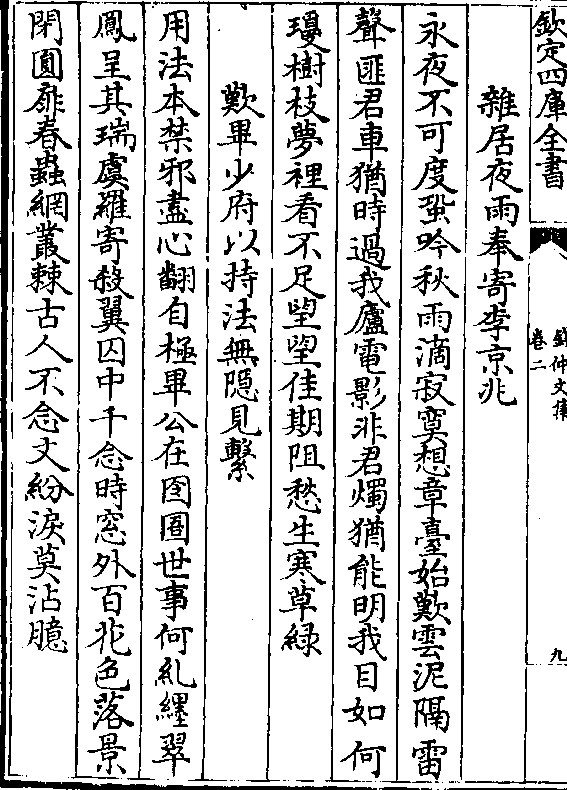 欽定四庫全書
錢仲文集
卷二
九
離居夜雨奉寄李京兆
永夜不可度蛩吟秋雨滴寂寞想章臺始歎雲泥隔雷
聲匪君車猶時過我廬電影非君燭猶能明我目如何
瓊樹枝夢裡看不足望望佳期阻愁生寒草綠
歎畢少府以持法無隱見繫
用法本禁邪盡心翻自極畢公在囹圄世事何糺纆翠
鳳呈其瑞虞羅寄殺翼囚中千念時窓外百花色落景
閉圓扉春蟲網叢棘古人不念文紛淚莫沾臆